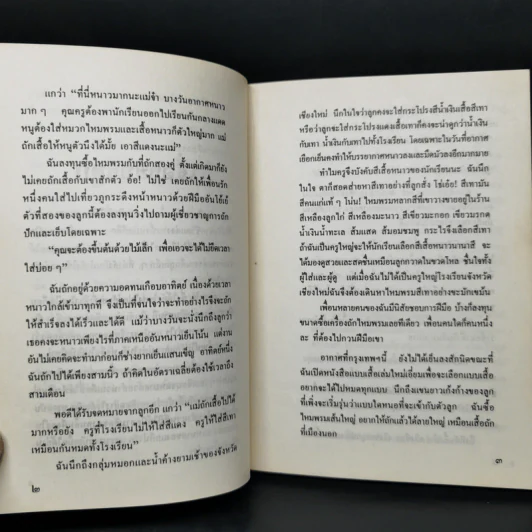 แกว่า “ที่นี่หนาวมากนะแม่จ๋า บางวันอากาศหนาว
มาก ๆ คุณครูต้องพานักเรียนออกไปเรียนกันกลางแดด
หนูต้องใส่หมวกไหมพรมและเสื้อหนาวก็ตัวใหญ่มาก แม่
ถักเสื้อให้หนูตัวนึงได้มั้ย เอาสีแดงนะแม่”
ฉันลงทุนซื้อไหมพรมกับที่ถักสองคู่ ตั้งแต่เกิดมาก็ยัง
ไม่เคยถักเสื้อกับเขาสักตัว อ้อ! ไม่ใช่ เคยถักให้เพื่อนรัก
หนึ่งคนใส่ไปเที่ยวภูกระดึงหน้าหนาวด้วยฝีมืออันโย้เย้
ตัวที่สองของลูกนี้ต้องลงทุนวิ่งไปถามผู้เชี่ยวชาญการถัก
ปักและเย็บโดยเฉพาะ
“คุณจะต้องขึ้นต้นด้วยไม้เล็ก เพื่อเอวจะได้ไม่ยืดเวลา
ใส่บ่อย ๆ”
ฉันถักอยู่ด้วยความอดทนเกือบอาทิตย์ เนื่องด้วยเวลา
หนาวใกล้เข้ามาทุกที จึงเป็นที่จนใจว่าจะทำอย่างไรจึงจะถัก
ให้สำเร็จลงได้เร็วและได้ดี แม้ว่าบางวันจะนั่งนึกถึงลูกว่า
เธอคงจะหนาวเพียงไรที่ภาคเหนืออันหนาวเย็นโน้น แต่งาน
อันไม่เคยคิดจะทำมาก่อนก็ช่างยากเย็นแสนเข็ญ อาทิตย์หนึ่ง
ฉันถักไปได้เพียงสามนิ้ว ถ้าคิดในอัตราเฉลี่ยต้องใช้เวลาถึง
สามเดือน
พอดีได้รับจดหมายจากลูกอีก แกว่า “แม่ถักเสื้อไปได้
มากหรือยัง ครูที่โรงเรียนไม่ให้ใส่สีแดง ครูให้ใส่สีเทา
เหมือนกันหมดทั้งโรงเรียน”
ฉันนึกถึงกลุ่มหมอกและน้ำค้างยามเช้าของจังหวัด
๒
เชียงใหม่ นึกในใจว่าลูกคงจะใส่กระโปรงสีน้ำเงินเสื้อสีเทา
หรือว่าลูกจะใส่กระโปรงแดงเสื้อเทาก็คงจะน่าดูกว่าน้ำเงิน
กับเทา น้ำเงินกับเทาไปทั้งโรงเรียน โดยเฉพาะในวันที่อากาศ
เยือกเย็นคงทำให้บรรยากาศหนาวลงและมืดมัวลงอีกมากมาย
ทำไมครูจึงบังคับสีเสื้อหนาวของนักเรียนนะ ฉันนึก
ในใจ ตาก็สอดส่ายหาสีเทาอย่างที่ลูกสั่ง โธ่เอ๋ย! สีเทามัน
สีคนแก่แท้ ๆ โน่น! ไหมพรมหลากสีที่เขาวางขายอยู่ในร้าน
สีเหลืองลูกไก่ สีเหลืองมะนาว สีเขียวมะกอก เขียวมรกต
น้ำเงินน้ำทะเล ส้มแสด ส้มอมชมพู กระไรจึงเลือกสีเทา
ถ้าฉันเป็นครูใหญ่จะให้นักเรียนเลือกสีเสื้อหนาวนานาสี จะ
ได้มองดูสวยและสดชื่นเหมือนลูกกวาดในขวดโหล ชื่นใจทั้ง
ผู้ใส่และผู้ดู แต่เมื่อฉันไม่ได้เป็นครูใหญ่โรงเรียนจังหวัด
เชียงใหม่ฉันจึงต้องเดินหาไหมพรมสีเทาอย่างขะมักเขม้น
เพื่อนหลายคนของฉันมีนิสัยชอบการฝีมือ บ้างก็ลงทุน
ขนาดซื้อเครื่องถักไหมพรมเลยทีเดียว เพื่อนคนใดก็คนหนึ่ง
ละ ที่ต้องไปกวนฝีมือเขา
อากาศที่กรุงเทพฯนี้ ยังไม่ได้เย็นลงสักนิดขณะที่
ฉันเปิดหนังสือแบบเสื้อเล่มใหม่เอี่ยมเพื่อจะเลือกแบบเสื้อ
อยากจะได้ไปหมดทุกแบบ นึกถึงแขนยาวเก้งก้างของลูก
ที่เพิ่งจะเริ่มรุ่นว่าแบบใดหนอที่จะเข้ากับตัวลูก ฉันซื้อ
ไหมพรมเส้นใหญ่ อยากให้ถักแล้วได้ลายใหญ่ เหมือนเสื้อถัก
ที่เมืองนอก
๓